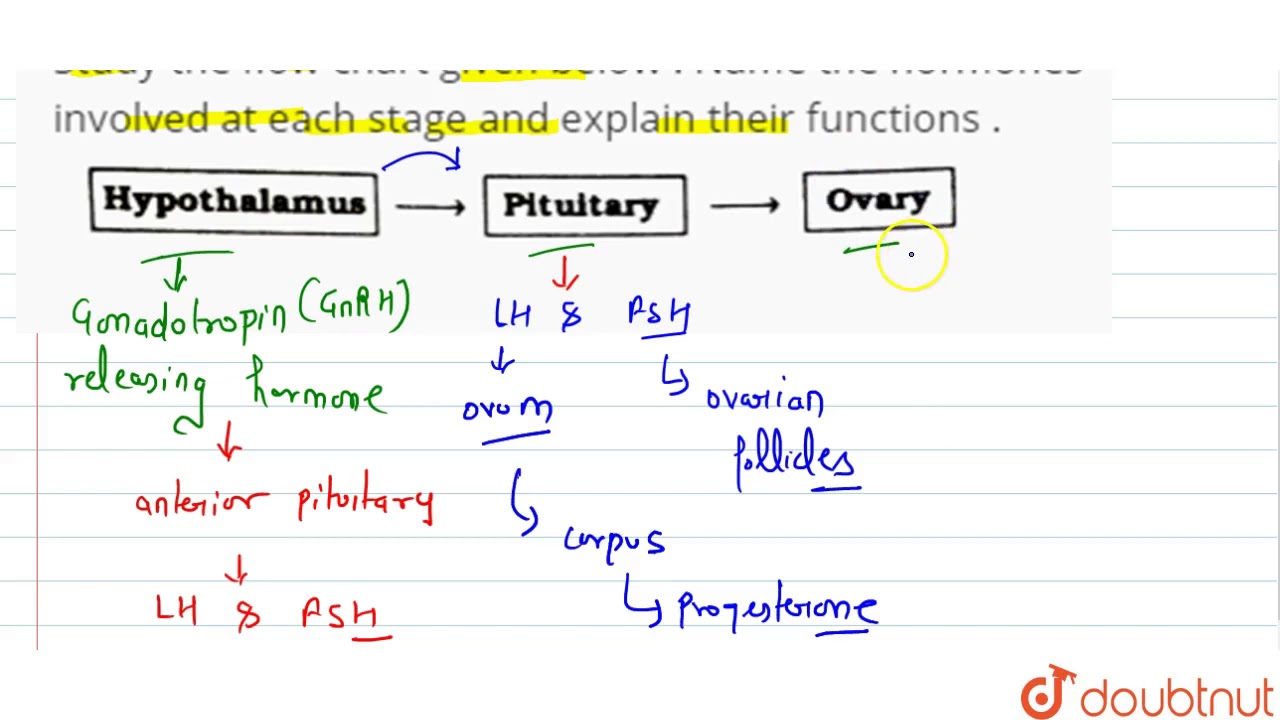 Study the flow chart given below . Name the hormones
involved at each stage and explain their functions .
Hypothalamus → Pituitary → Ovary
Gonadotropin (GnRH)
releasing hormone
anterior pituitary
LH & FSH
LH & FSH
ovum
ovarian
follicles
corpus
progesterone
doubtnut